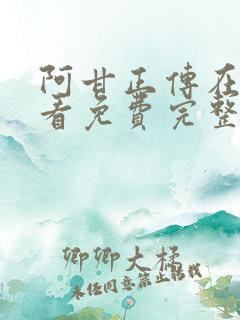 阿甘正傳在
看免費完整
卿卿大橘
未经同意禁止转载